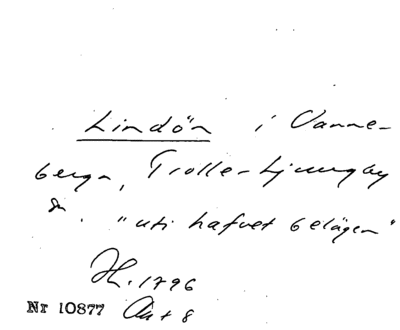 Lindön i Vanne-
berga, Trolle-Ljungby
sn. "uti hafvet belägen"
H. 1796
Nr 10877 Akt 8